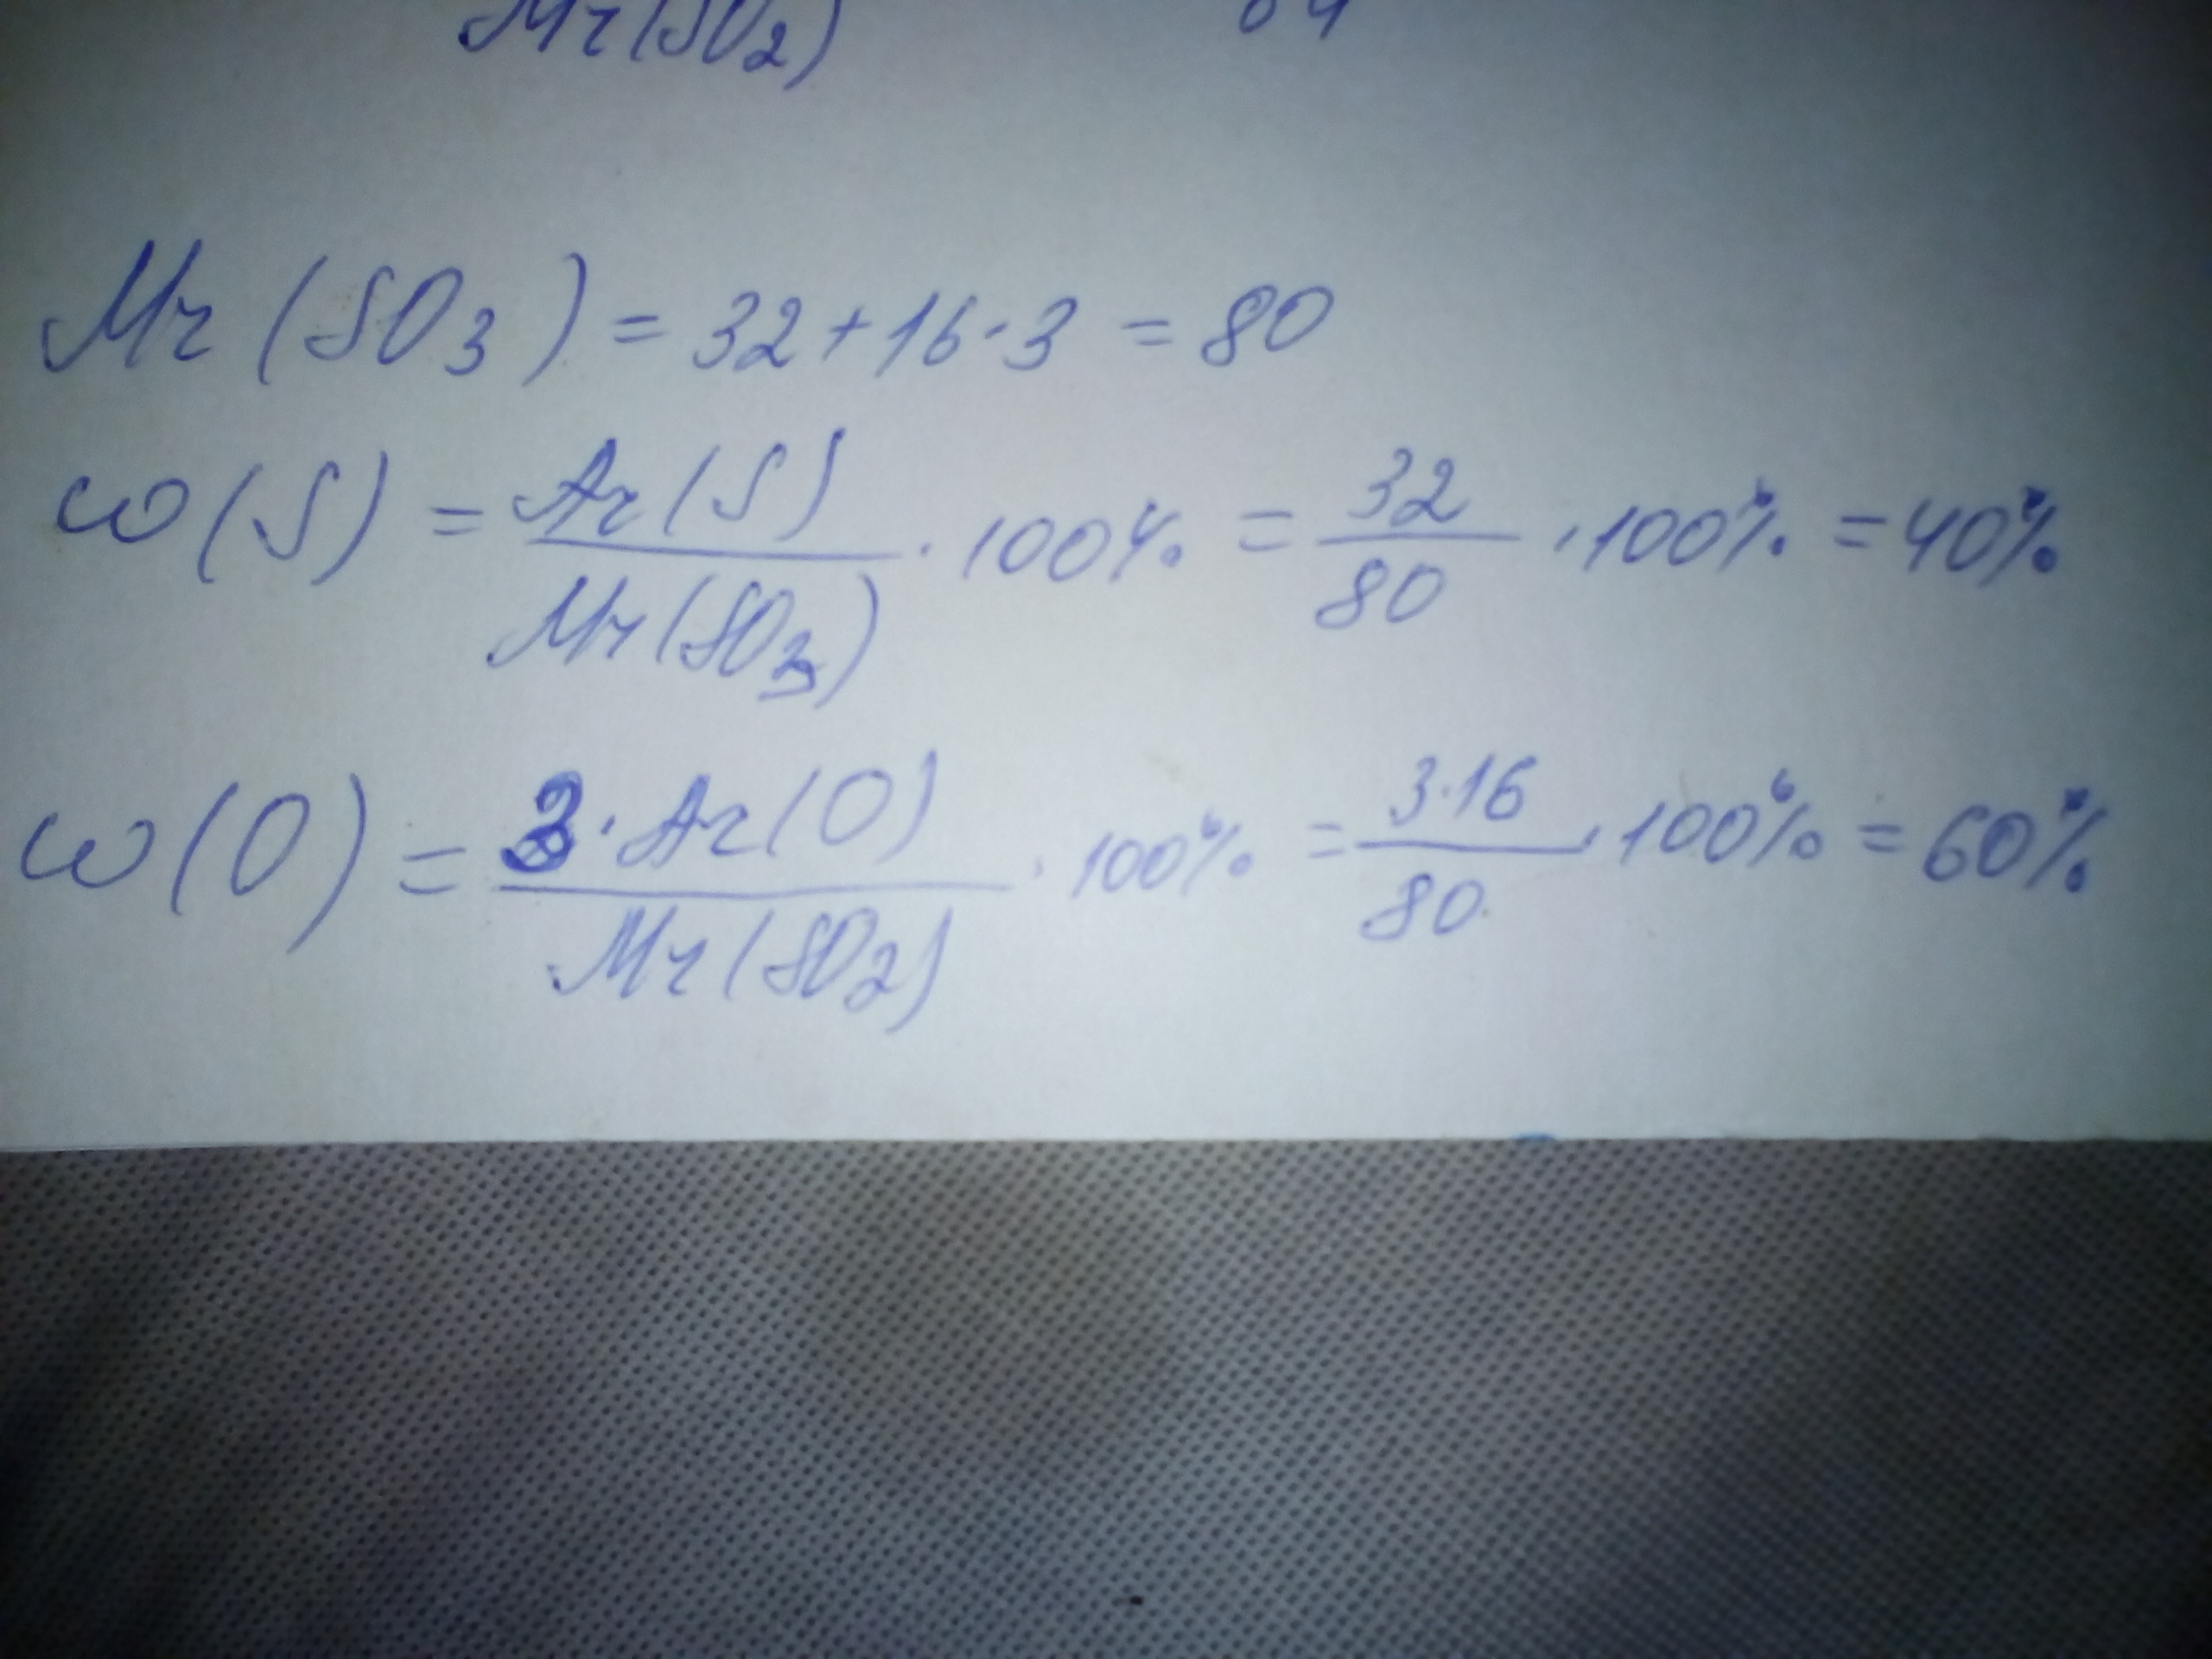 Mr(SO2) 64
Mr(SO3) = 32 + 16 · 3 = 80
ω(S) = Ar(S) / Mr(SO3) · 100% = 32 / 80 · 100% = 40%
ω(O) = 3 · Ar(O) / Mr(SO2) · 100% = 3·16 / 80 · 100% = 60%